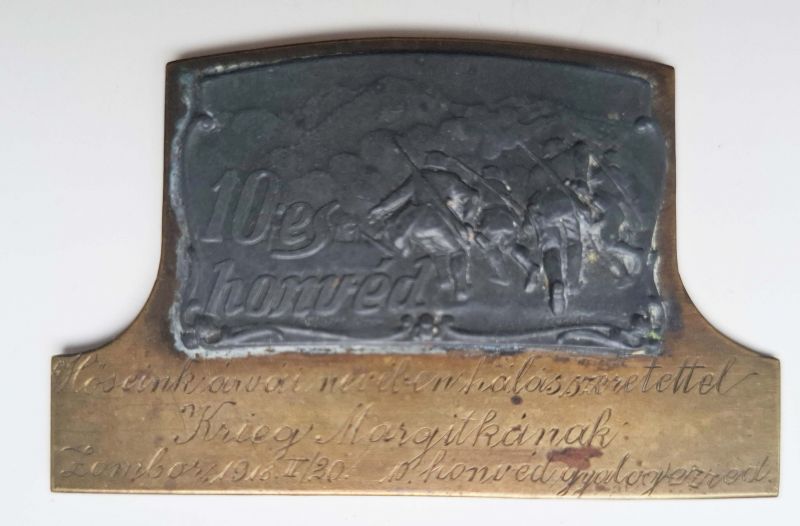 10es
honvéd
Hőseink árvái nevében hálás szeretettel
Krieg Margitkának
Zombor, 1916 II/20. 10. honvéd gyalogezred.